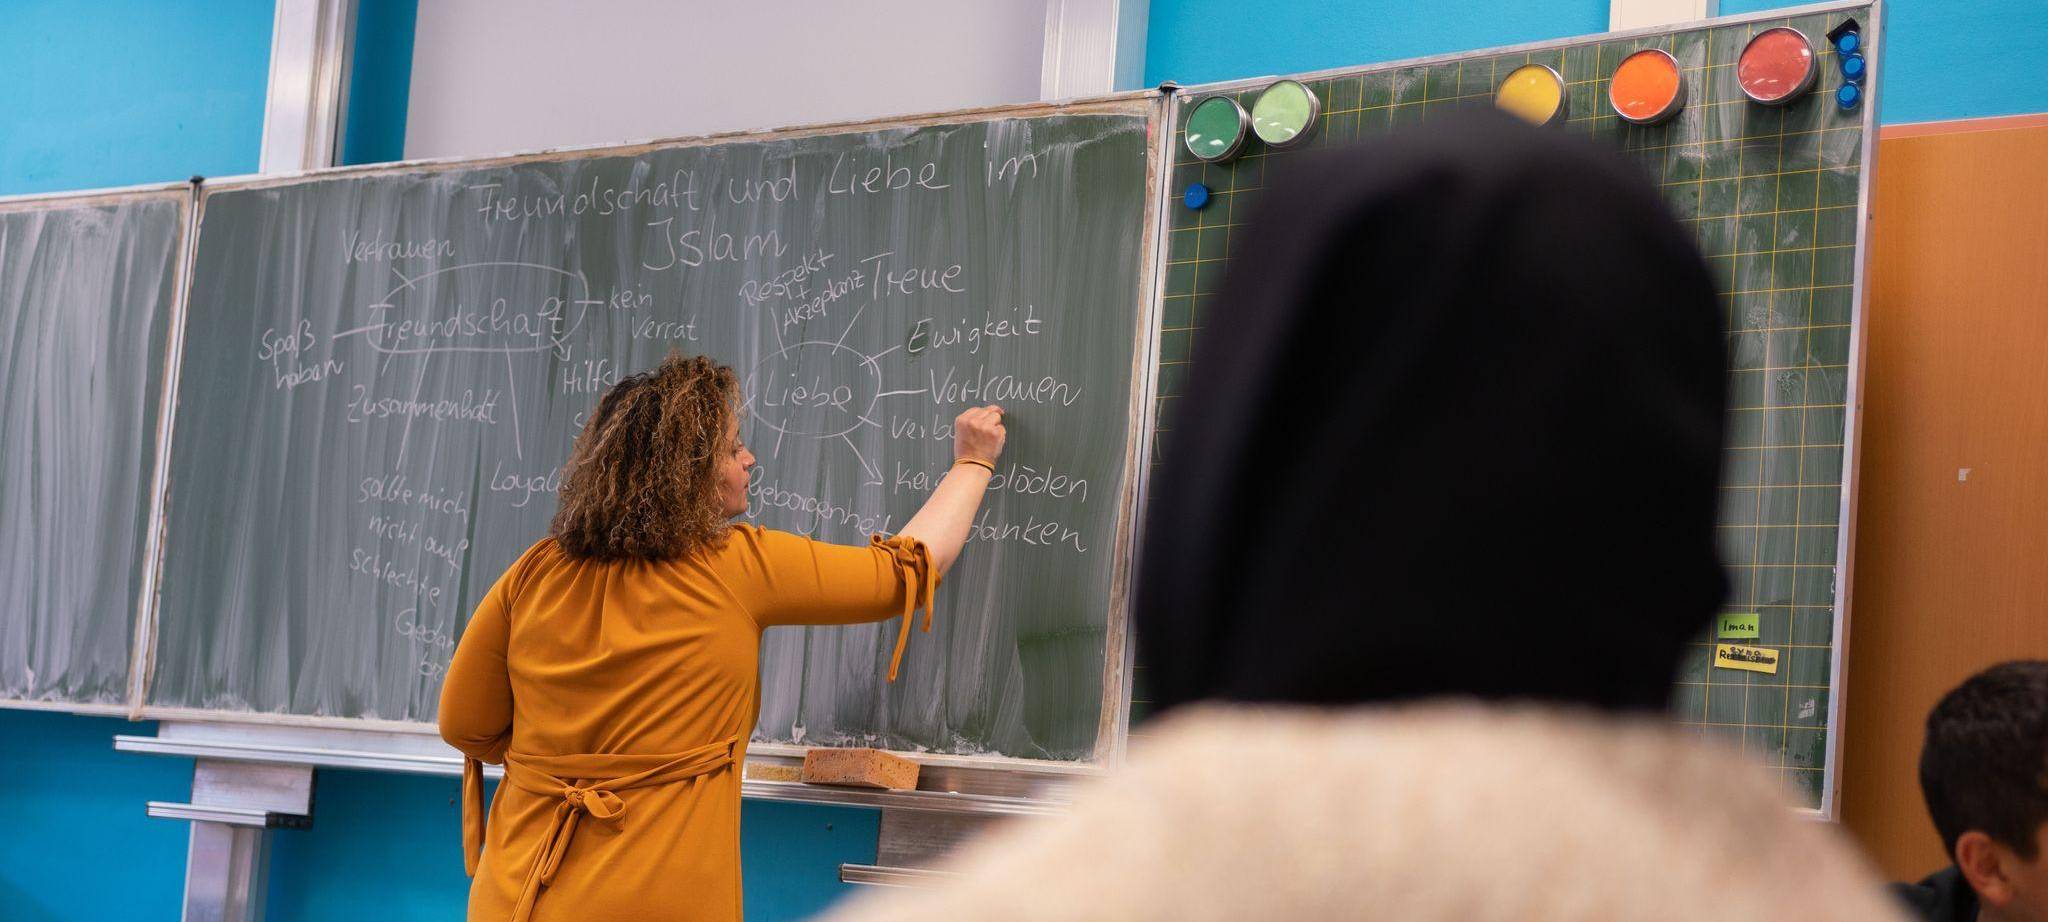 Freundschaft und Liebe im
Islam
Vertrauen
Freundschaft
kein
Verrat
Spaß
haben
Zusammenhalt
sollte mich
nicht auf
schlechte
Respekt
+
Akzeptanz
Treue
Ewigkeit
Liebe
Vertrauen
Geborgenheit
Iman